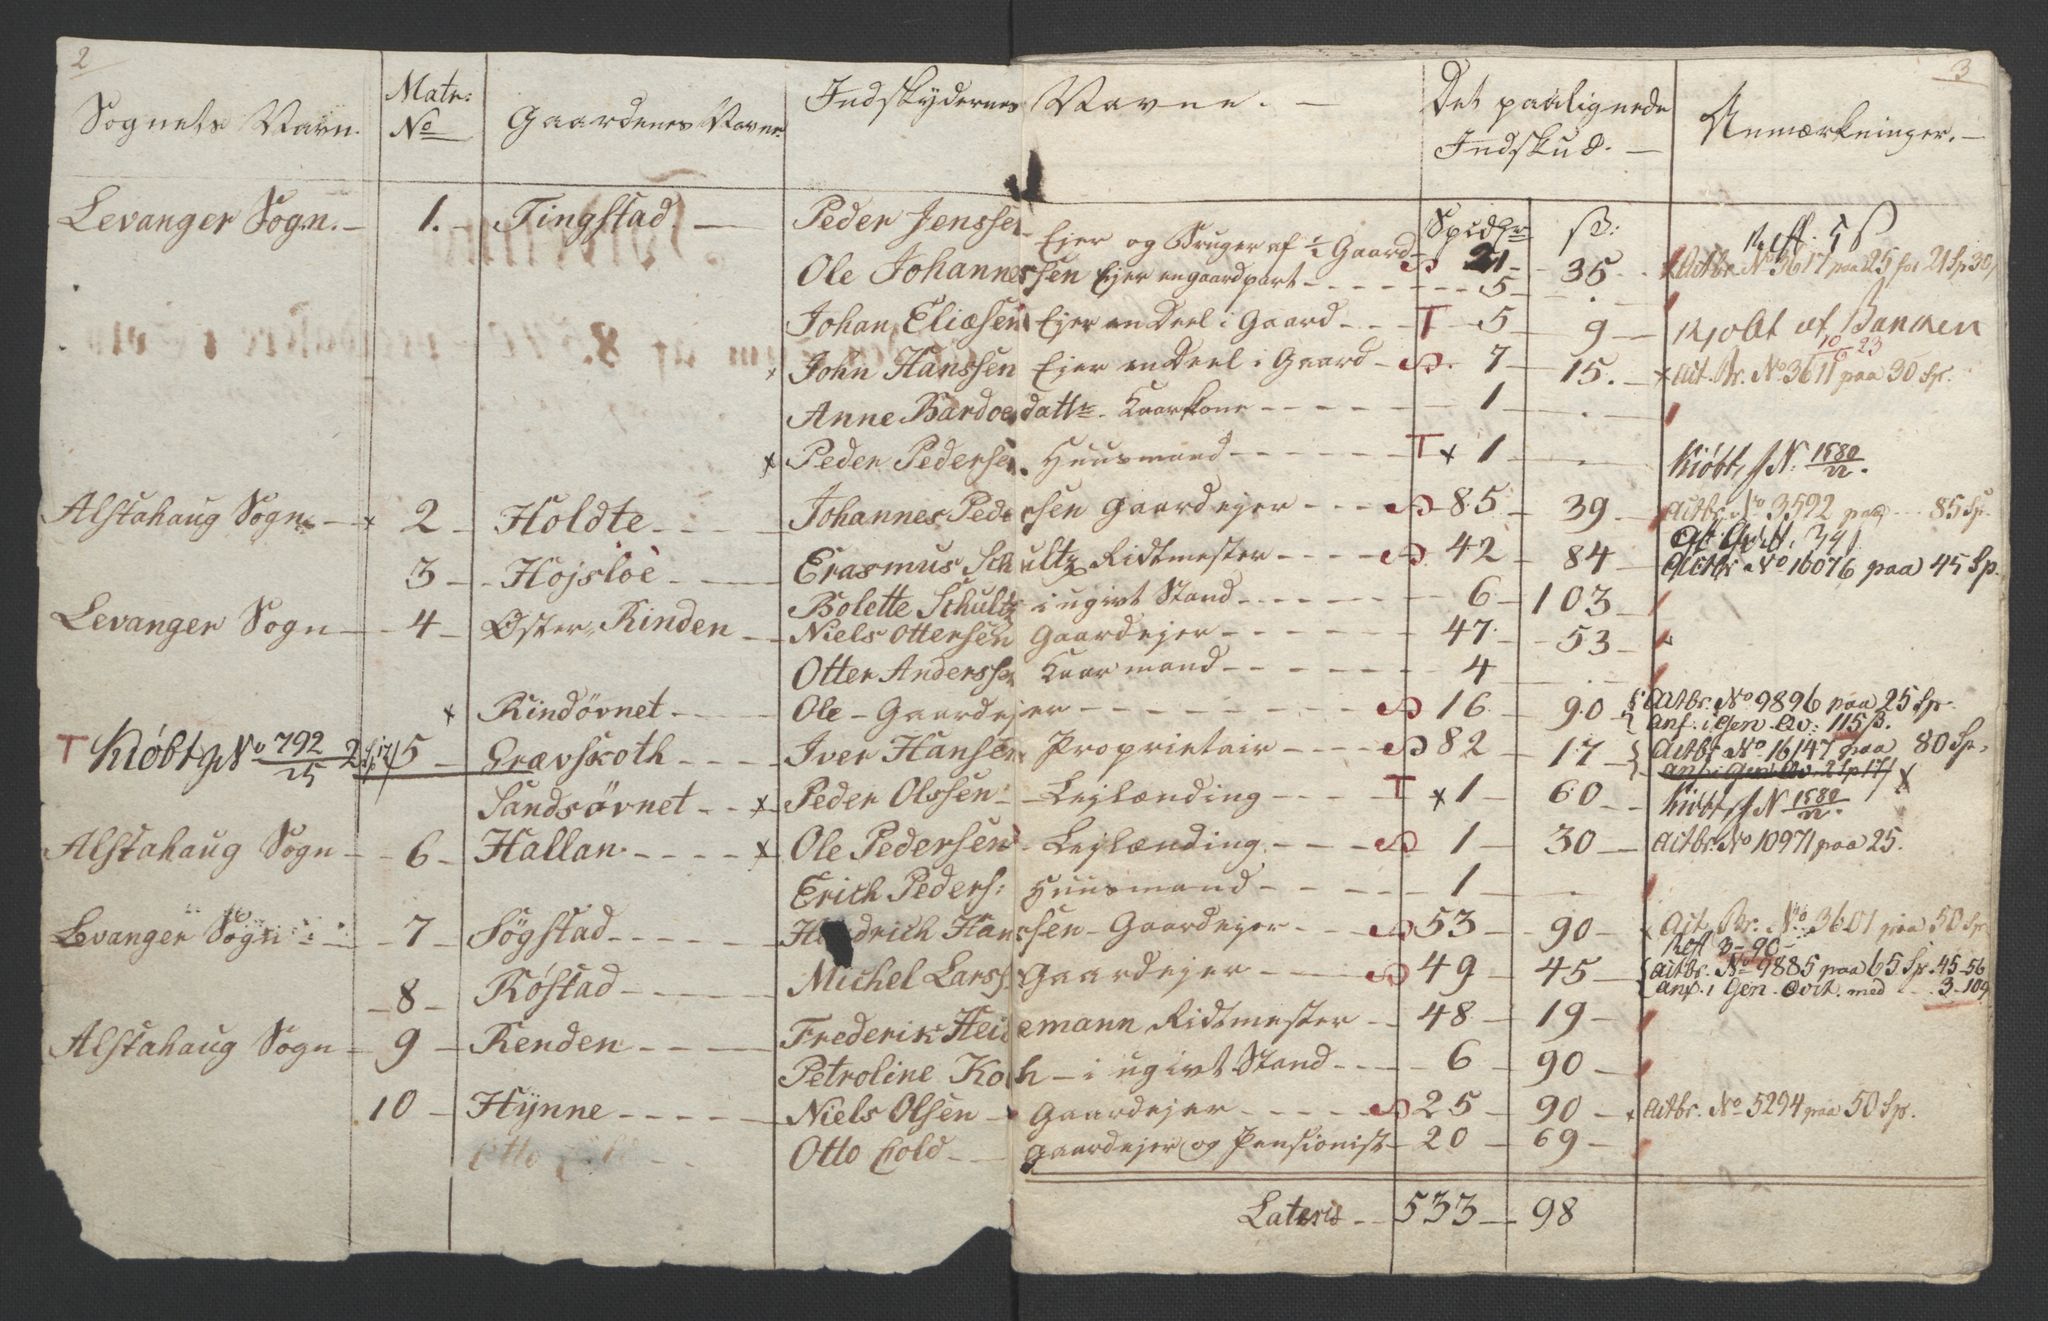 2
3
Sognets Navn. Matr: No Gaardenes Navne. Indskydernes Navne. Det paalignede Indskud. Anmærkninger.
Spidlr ß:
Levanger Sogn. 1. Tingstad. Peder Jenssen Ejer og Bruger af ½ Gaard 21 35 Actbr. No 3617 paa 25 for 21 Sp 30
Ole Johannessen Ejer en gaardpart 5 .
Johan Eliæsen Ejer en Deel i Gaard T 5 9 Kjøbt af Banken
John Hanssen Ejer en Deel i Gaard 7 15. Act. Br. No 3611 paa 30 Sp.
Anne Bardoe datter Kaarkone 1 .
x Peder Pedersen. Huusmand T x 1 Kiøbt, J N. 1580/22.
Alstahaug Sogn x 2 Holdte Johannes Pedersen Gaardejer 85 39 Actbr. No 3592 paa 85 Sp.
3 Hojsloe Erasmus Schultz Ridtmester 42 84 Actbr No 10076 paa 45 Sp.
Bolette Schultz i ugivt Stand 6 103
Levanger Sogn 4 Øster Rinden Niels Ottersen Gaardejer 47 53
Otter Anderssen Kaarmand 4 .
x Rindövnet Ole Gaardejer 16 90 Actbr. No 9896 paa 25 Sp.
Anf: i Gen. Qv: 115 ß.
T Kiøbt J No 792/25 5 Grævskoth Iver Hansen Proprietair 82 17 Actbr No 16147 paa 80 Sp.
Anf i Gen Qv 2 Sp 17 ß x
Sandsövnet x Peder Olssen Lejlænding T x 1 60 Kiøbt, J N 1580/22.
Alstahaug Sogn 6 Hallan. x Ole Pedersen Lejlænding 1 30 Actbr. No 10971 paa 25.
Erich Peders: Huusmand 1 .
Levanger Sogn 7 Sögstad Hendrich Hanssen Gaardejer 53 90 Act. Br. No 3601 paa 50 Sp
Rest 3-90
8 Röstad Michel Larss. Gaardejer 49 45 Actbr. No 9885 paa 65 Sp. 45-56
Anf. i Gen. Qvit. med 3-109
Alstahaug Sogn 9 Renden Frederik Heidemann Ridtmester 48 19
Petroline Koch i ugivt Stand 6 90
10 Hÿnne Niels Olsen Gaardejer 25 90 x Actbr. No 5294 paa 50 Sp.
Otto Cold Gaardejer og Pensionist 20 69
Lateris 533 98